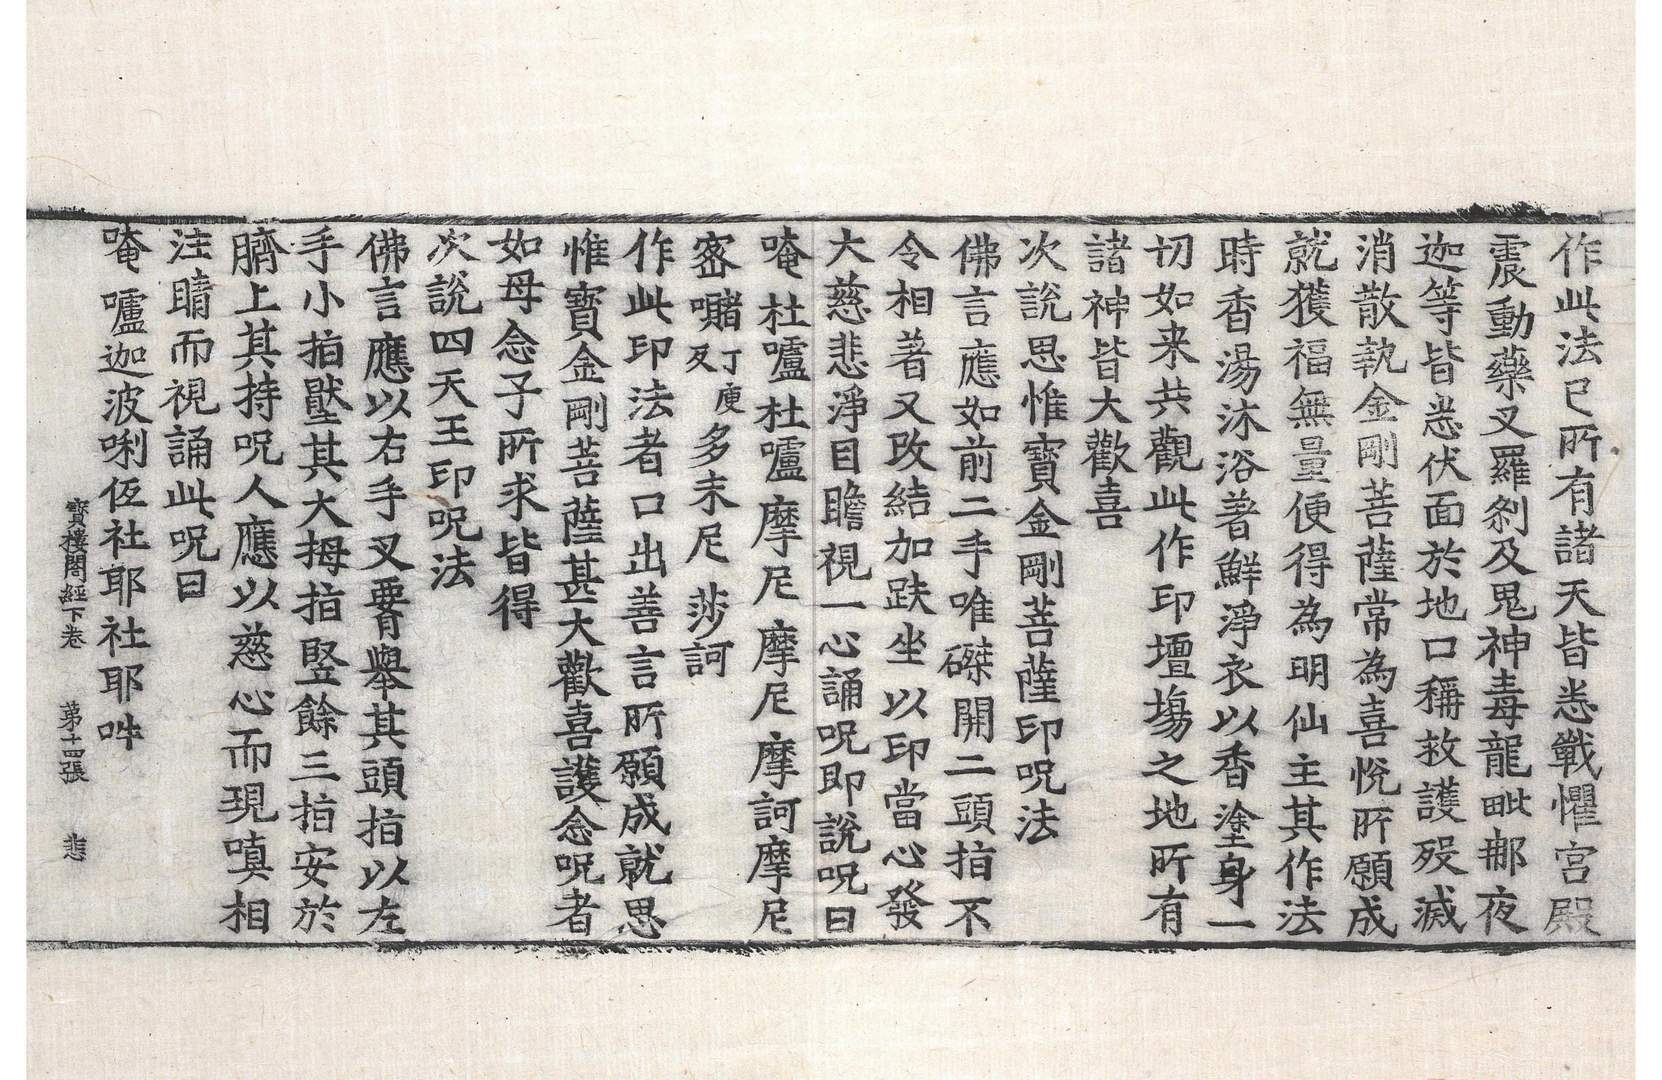 作此法已所有諸天皆悉戰懼宮殿
震動藥叉羅刹及鬼神毒龍毗那夜
迦等皆悉伏面於地口稱救護殁滅
消散執金剛菩薩常為喜悅所願成
就獲福無量便得為明仙主其作法
時香湯沐浴著鮮淨衣以香塗身一
切如来共觀此作印壇場之地所有
諸神皆大歡喜
次說思惟寶金剛菩薩印呪法
佛言應如前二手唯磔開二頭指不
令相著又改結加趺坐以印當心發
大慈悲淨目瞻視一心誦呪即說呪曰
唵杜嚧杜嚧摩尼摩尼摩訶摩尼
窓嚪丁庾反多末尼莎訶
作此印法者口出善言所願成就思
惟寶金剛菩薩甚大歡喜護念呪者
如母念子所求皆得
次說四天王印呪法
佛言應以右手叉䯒舉其頭指以左
手小指壓其大拇指竪餘三指安於
臍上其持呪人應以慈心而現嗔相
注睛而視誦此呪曰
唵嚧迦波唎伍社耶社耶吽
寶樓閣經下卷 第十四張 悲